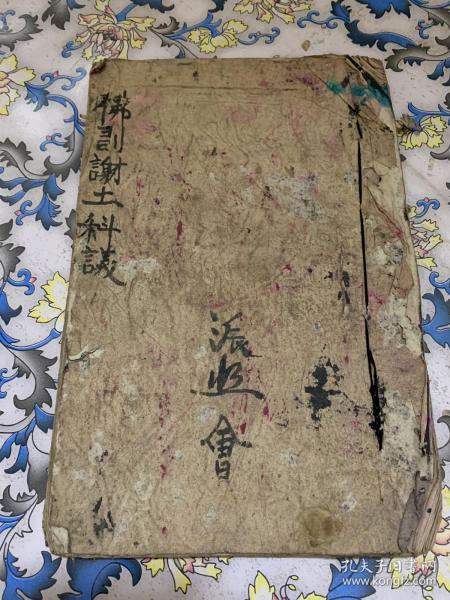 佛司謝土科議
派 會
孔夫子旧书网
www.kongfz.com